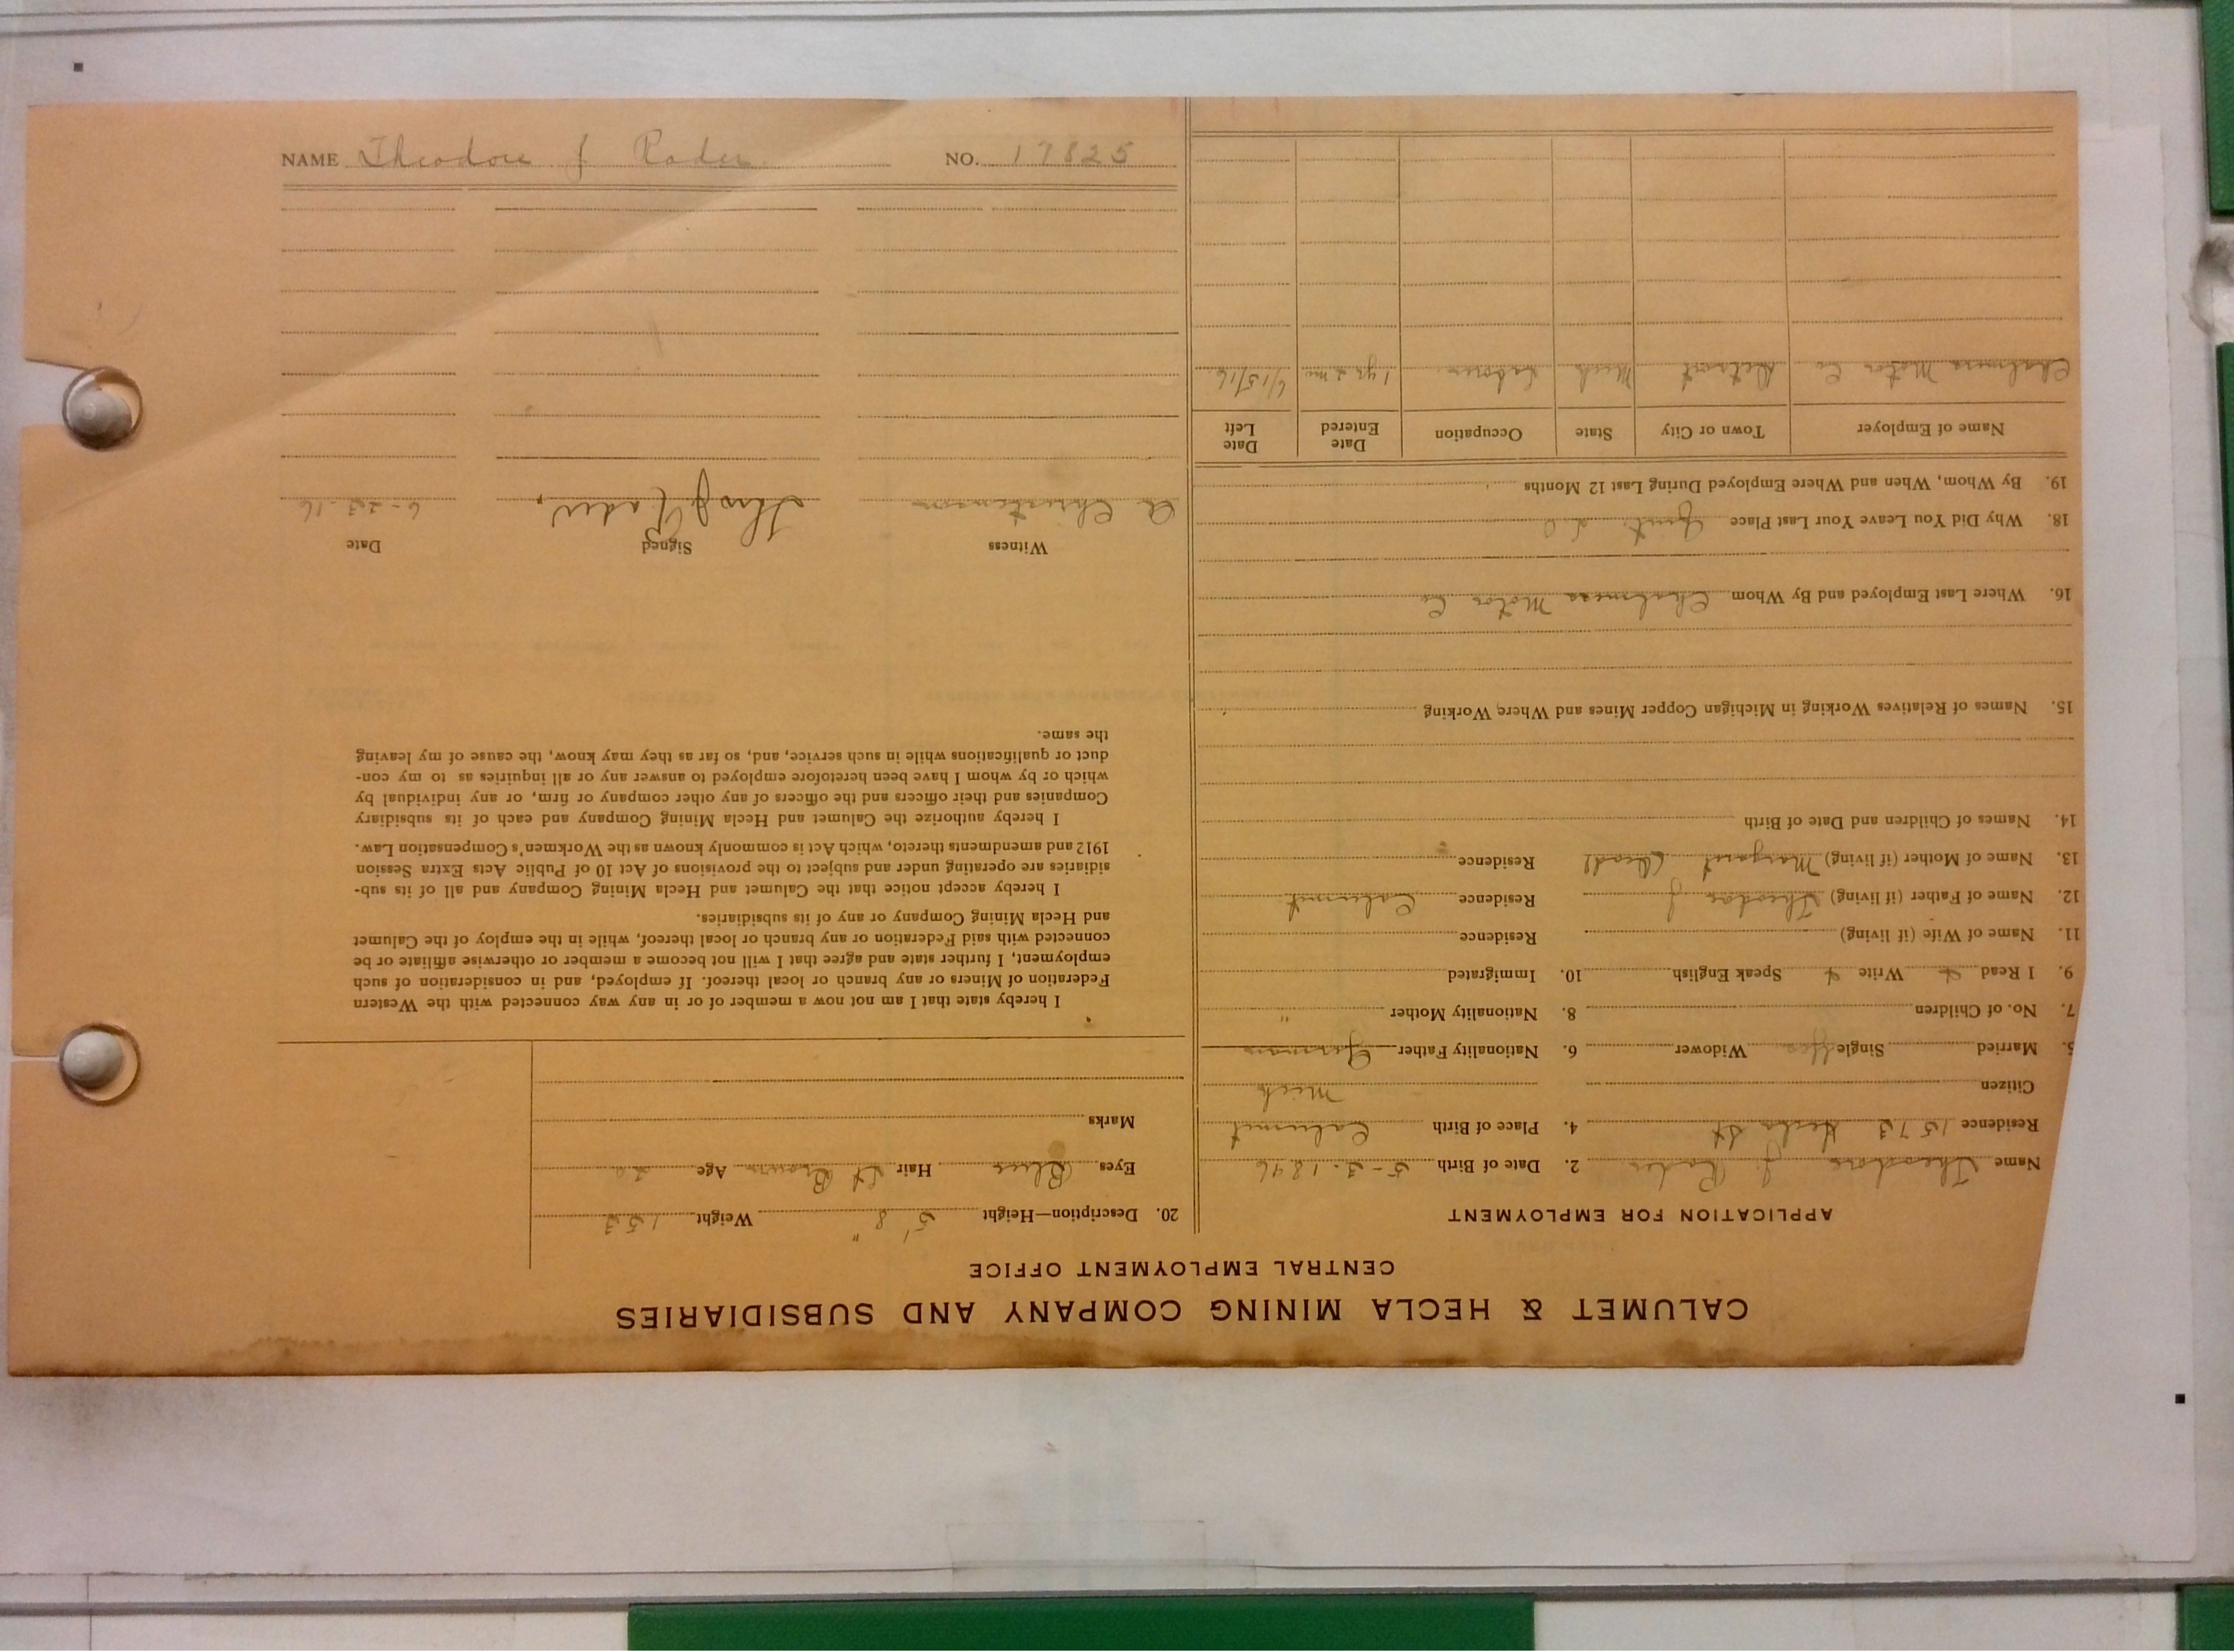 CALUMET & HECLA MINING COMPANY AND SUBSIDIARIES
CENTRAL EMPLOYMENT OFFICE
APPLICATION FOR EMPLOYMENT
Name Theodore J Rader 2. Date of Birth 5-3-1896
Residence 1573 Hecla St 4. Place of Birth Calumet
Citizen Mich
5. Married Single Yes Widower 6. Nationality Father German
7. No. of Children 8. Nationality Mother "
9. I Read Write Speak English 10. Immigrated
11. Name of Wife (if living) Residence
12. Name of Father (if living) Theodore J Residence Calumet
13. Name of Mother (if living) Margaret Residence
14. Names of Children and Date of Birth
15. Names of Relatives Working in Michigan Copper Mines and Where Working
16. Where Last Employed and By Whom Chalmers Motor Co
18. Why Did You Leave Your Last Place Quit
19. By Whom, When and Where Employed During Last 12 Months
Name of Employer Town or City State Occupation Date Entered Date Left
Chalmers Motor Co Detroit Mich Laborer 1 yr 2 mo 6/15/16
20. Description—Height 5' 8" Weight 153
Eyes Blue Hair Lt Brown Age 20
Marks
I hereby state that I am not now a member of or in any way connected with the Western
Federation of Miners or any branch or local thereof. If employed, and in consideration of such
employment, I further state and agree that I will not become a member or otherwise affiliate or be
connected with said Federation or any branch or local thereof, while in the employ of the Calumet
and Hecla Mining Company or any of its subsidiaries.
I hereby accept notice that the Calumet and Hecla Mining Company and all of its sub-
sidiaries are operating under and subject to the provisions of Act 10 of Public Acts Extra Session
1912 and amendments thereto, which Act is commonly known as the Workmen's Compensation Law.
I hereby authorize the Calumet and Hecla Mining Company and each of its subsidiary
Companies and their officers and the officers of any other company or firm, or any individual by
which or by whom I have been heretofore employed to answer any or all inquiries as to my con-
duct or qualifications while in such service, and, so far as they may know, the cause of my leaving
the same.
Witness Signed Date
A Christenson Theo J Rader. 6-23-16
NAME Theodore J Rader NO. 17825